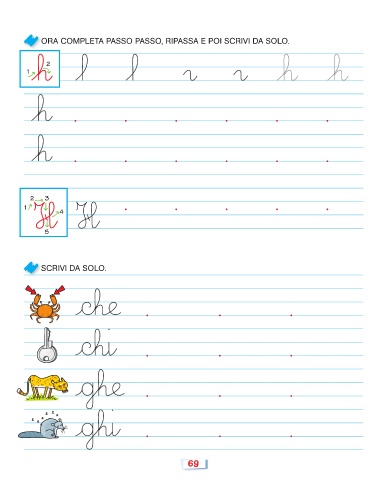 ORA COMPLETA PASSO PASSO, RIPASSA E POI SCRIVI DA SOLO.
1 2 h l l r r h h
h
h
1 2 3 4 5 H H
SCRIVI DA SOLO.
che
chi
ghe
z z z z z z ghi
69